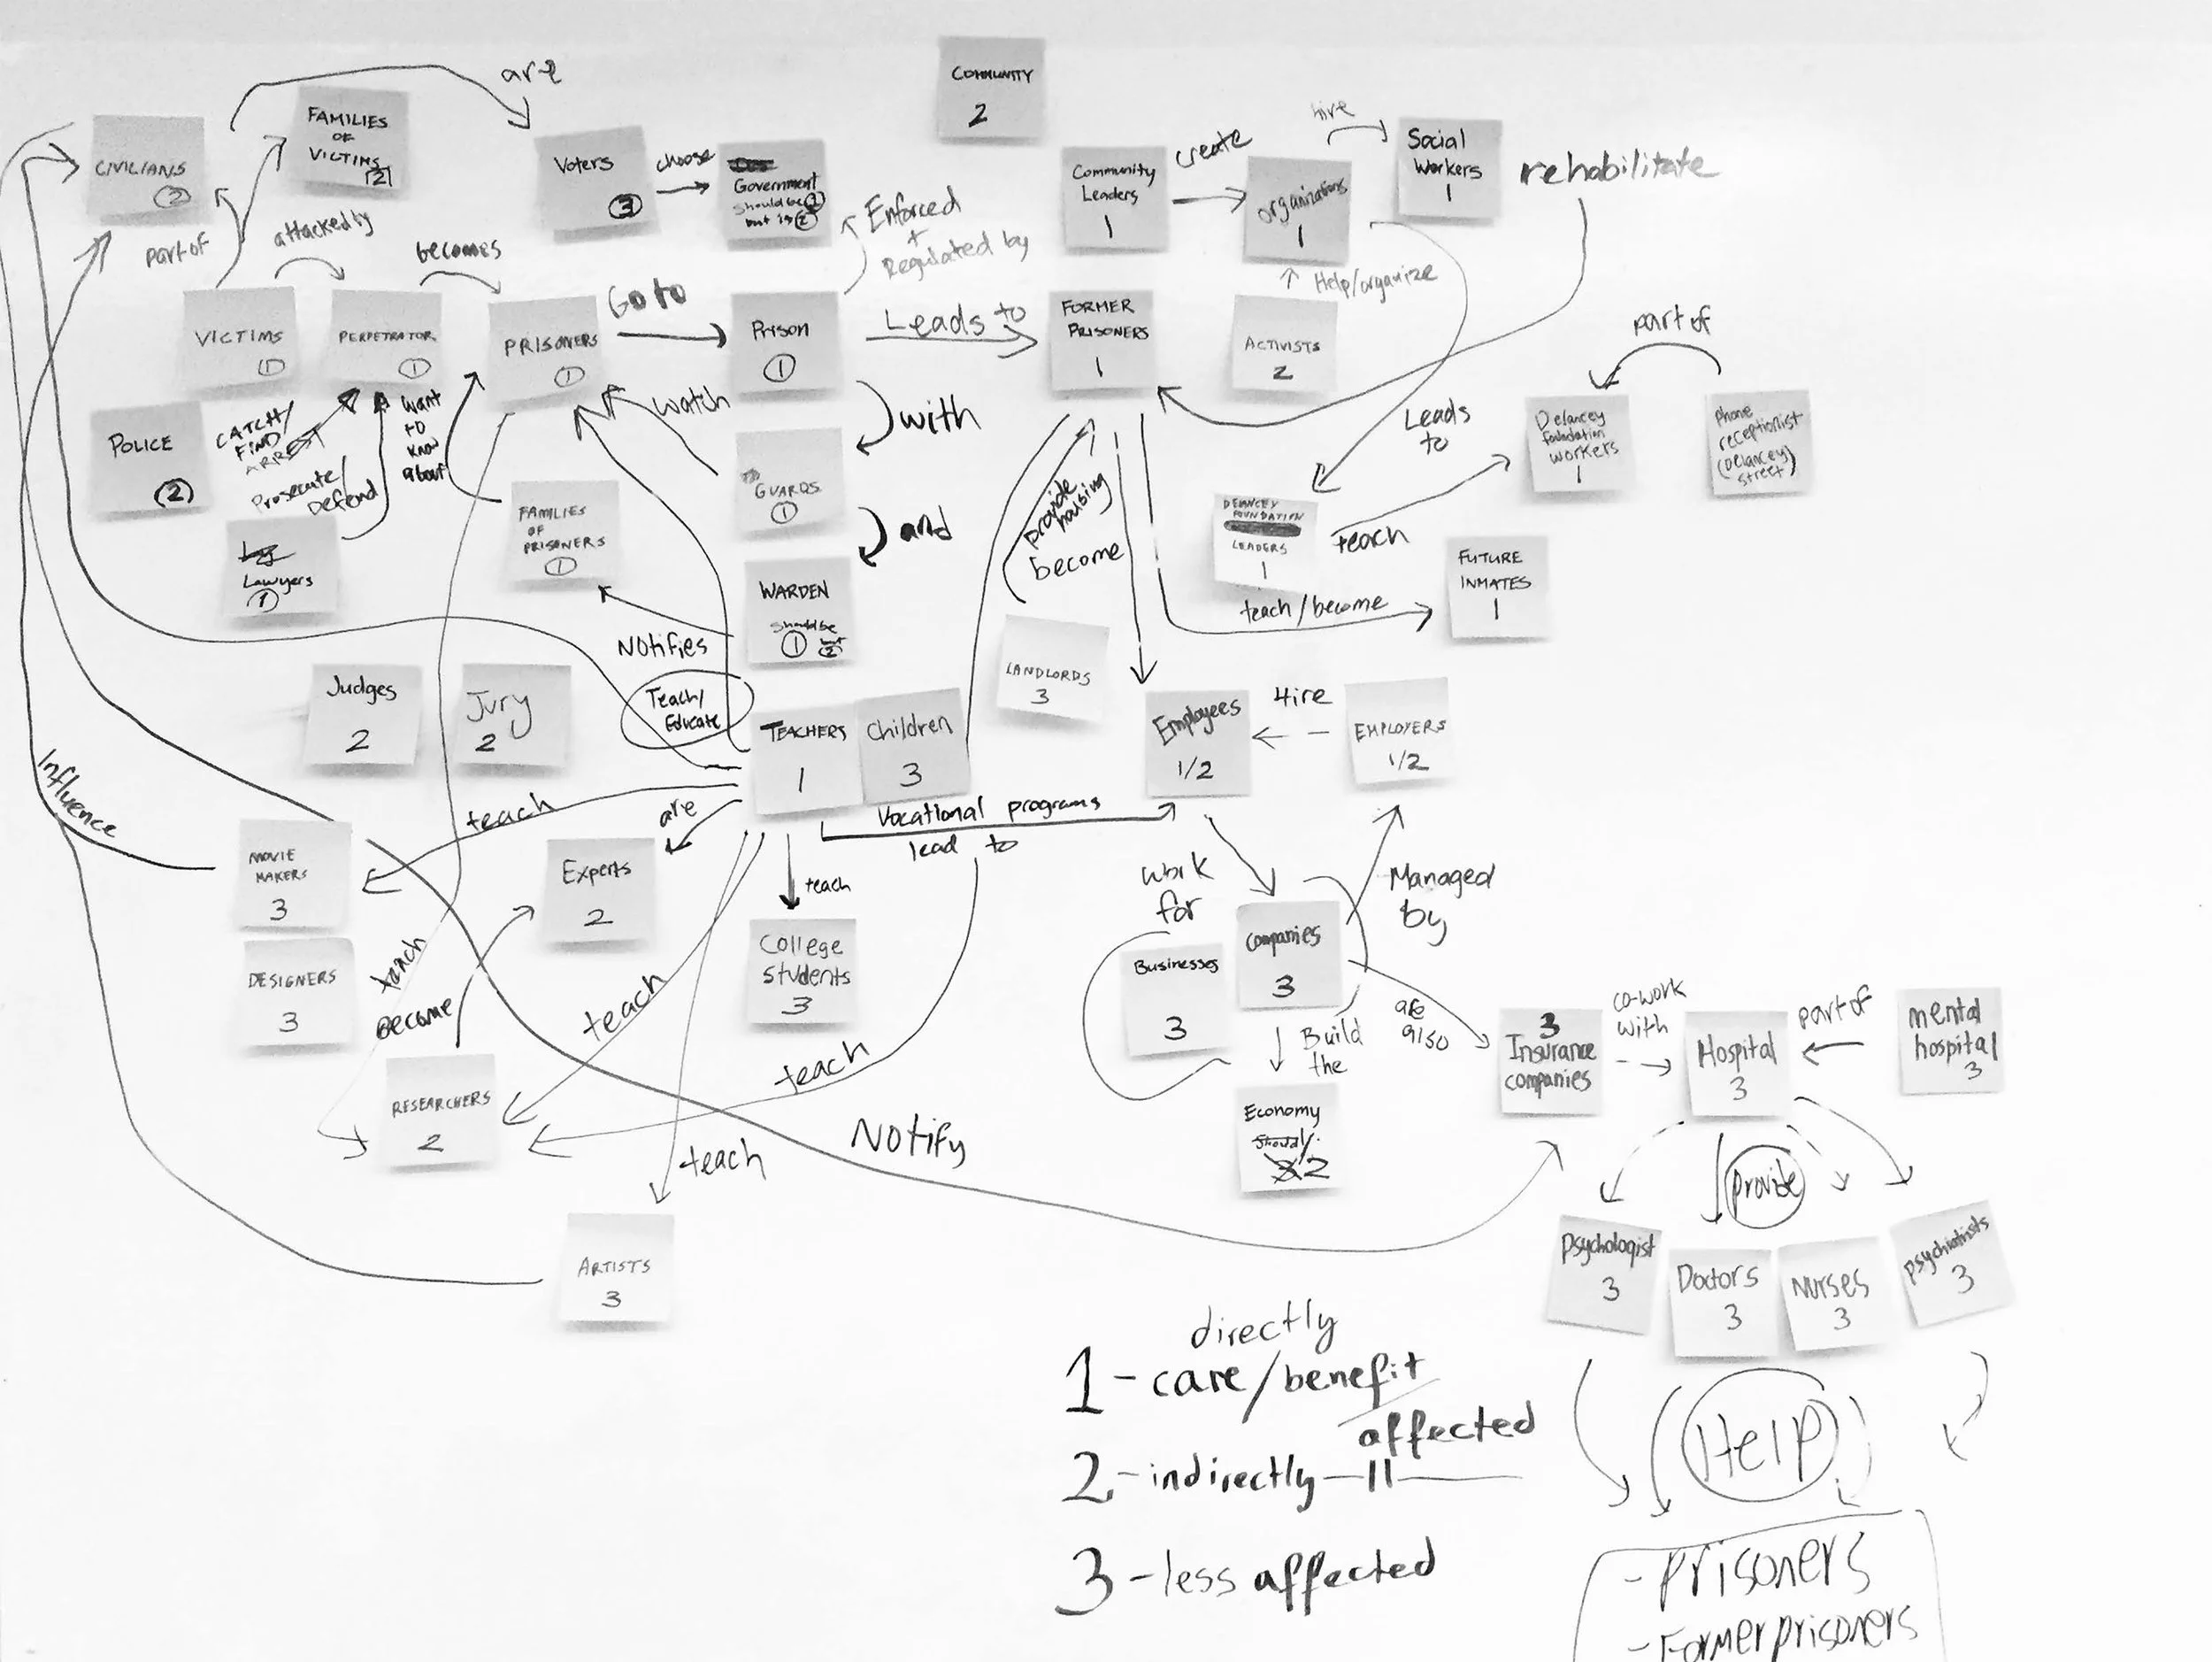 are
COMMUNITY
2
CIVILIANS
2
FAMILIES
OF
VICTIMS
2
Voters
3
choose
Government
should be 1
but is 2
Enforced
+
Regulated by
Community
Leaders
1
create
organizations
1
hire
Social
Workers
1
rehabilitate
part of
attacked by
becomes
Help/organize
VICTIMS
1
PERPETRATOR
1
PRISONERS
1
Go to
Prison
1
Leads to
FORMER
PRISONERS
1
ACTIVISTS
2
part of
POLICE
2
CATCH/
FIND/
ARREST
Prosecute/
Defend
want
to
know
about
watch
with
Leads
to
Delancey
foundation
workers
1
Phone
receptionist
(Delancey
street)
Lawyers
1
FAMILIES
OF
PRISONERS
1
GUARDS
1
and
WARDEN
should be
1 but 2
provide
housing
become
DELANCEY
FOUNDATION
LEADERS
1
teach
FUTURE
INMATES
1
teach/become
Notifies
Judges
2
Jury
2
Teach/
Educate
TEACHERS
1
Children
3
LANDLORDS
3
Employees
1/2
Hire
EMPLOYERS
1/2
Influence
teach
are
Vocational programs
lead to
MOVIE
MAKERS
3
Experts
2
teach
work
for
Managed
by
DESIGNERS
3
teach
Become
College
Students
3
teach
Businesses
3
Companies
3
Build
the
are
also
3
Insurance
companies
co-work
with
Hospital
3
part of
mental
hospital
3
RESEARCHERS
2
teach
Notify
teach
Economy
2
provide
ARTISTS
3
Psychologist
3
Doctors
3
Nurses
3
psychiatrists
3
directly
1 - care/benefit
affected
2 - indirectly — 11 —
3 - less affected
Help
- Prisoners
- Former prisoners